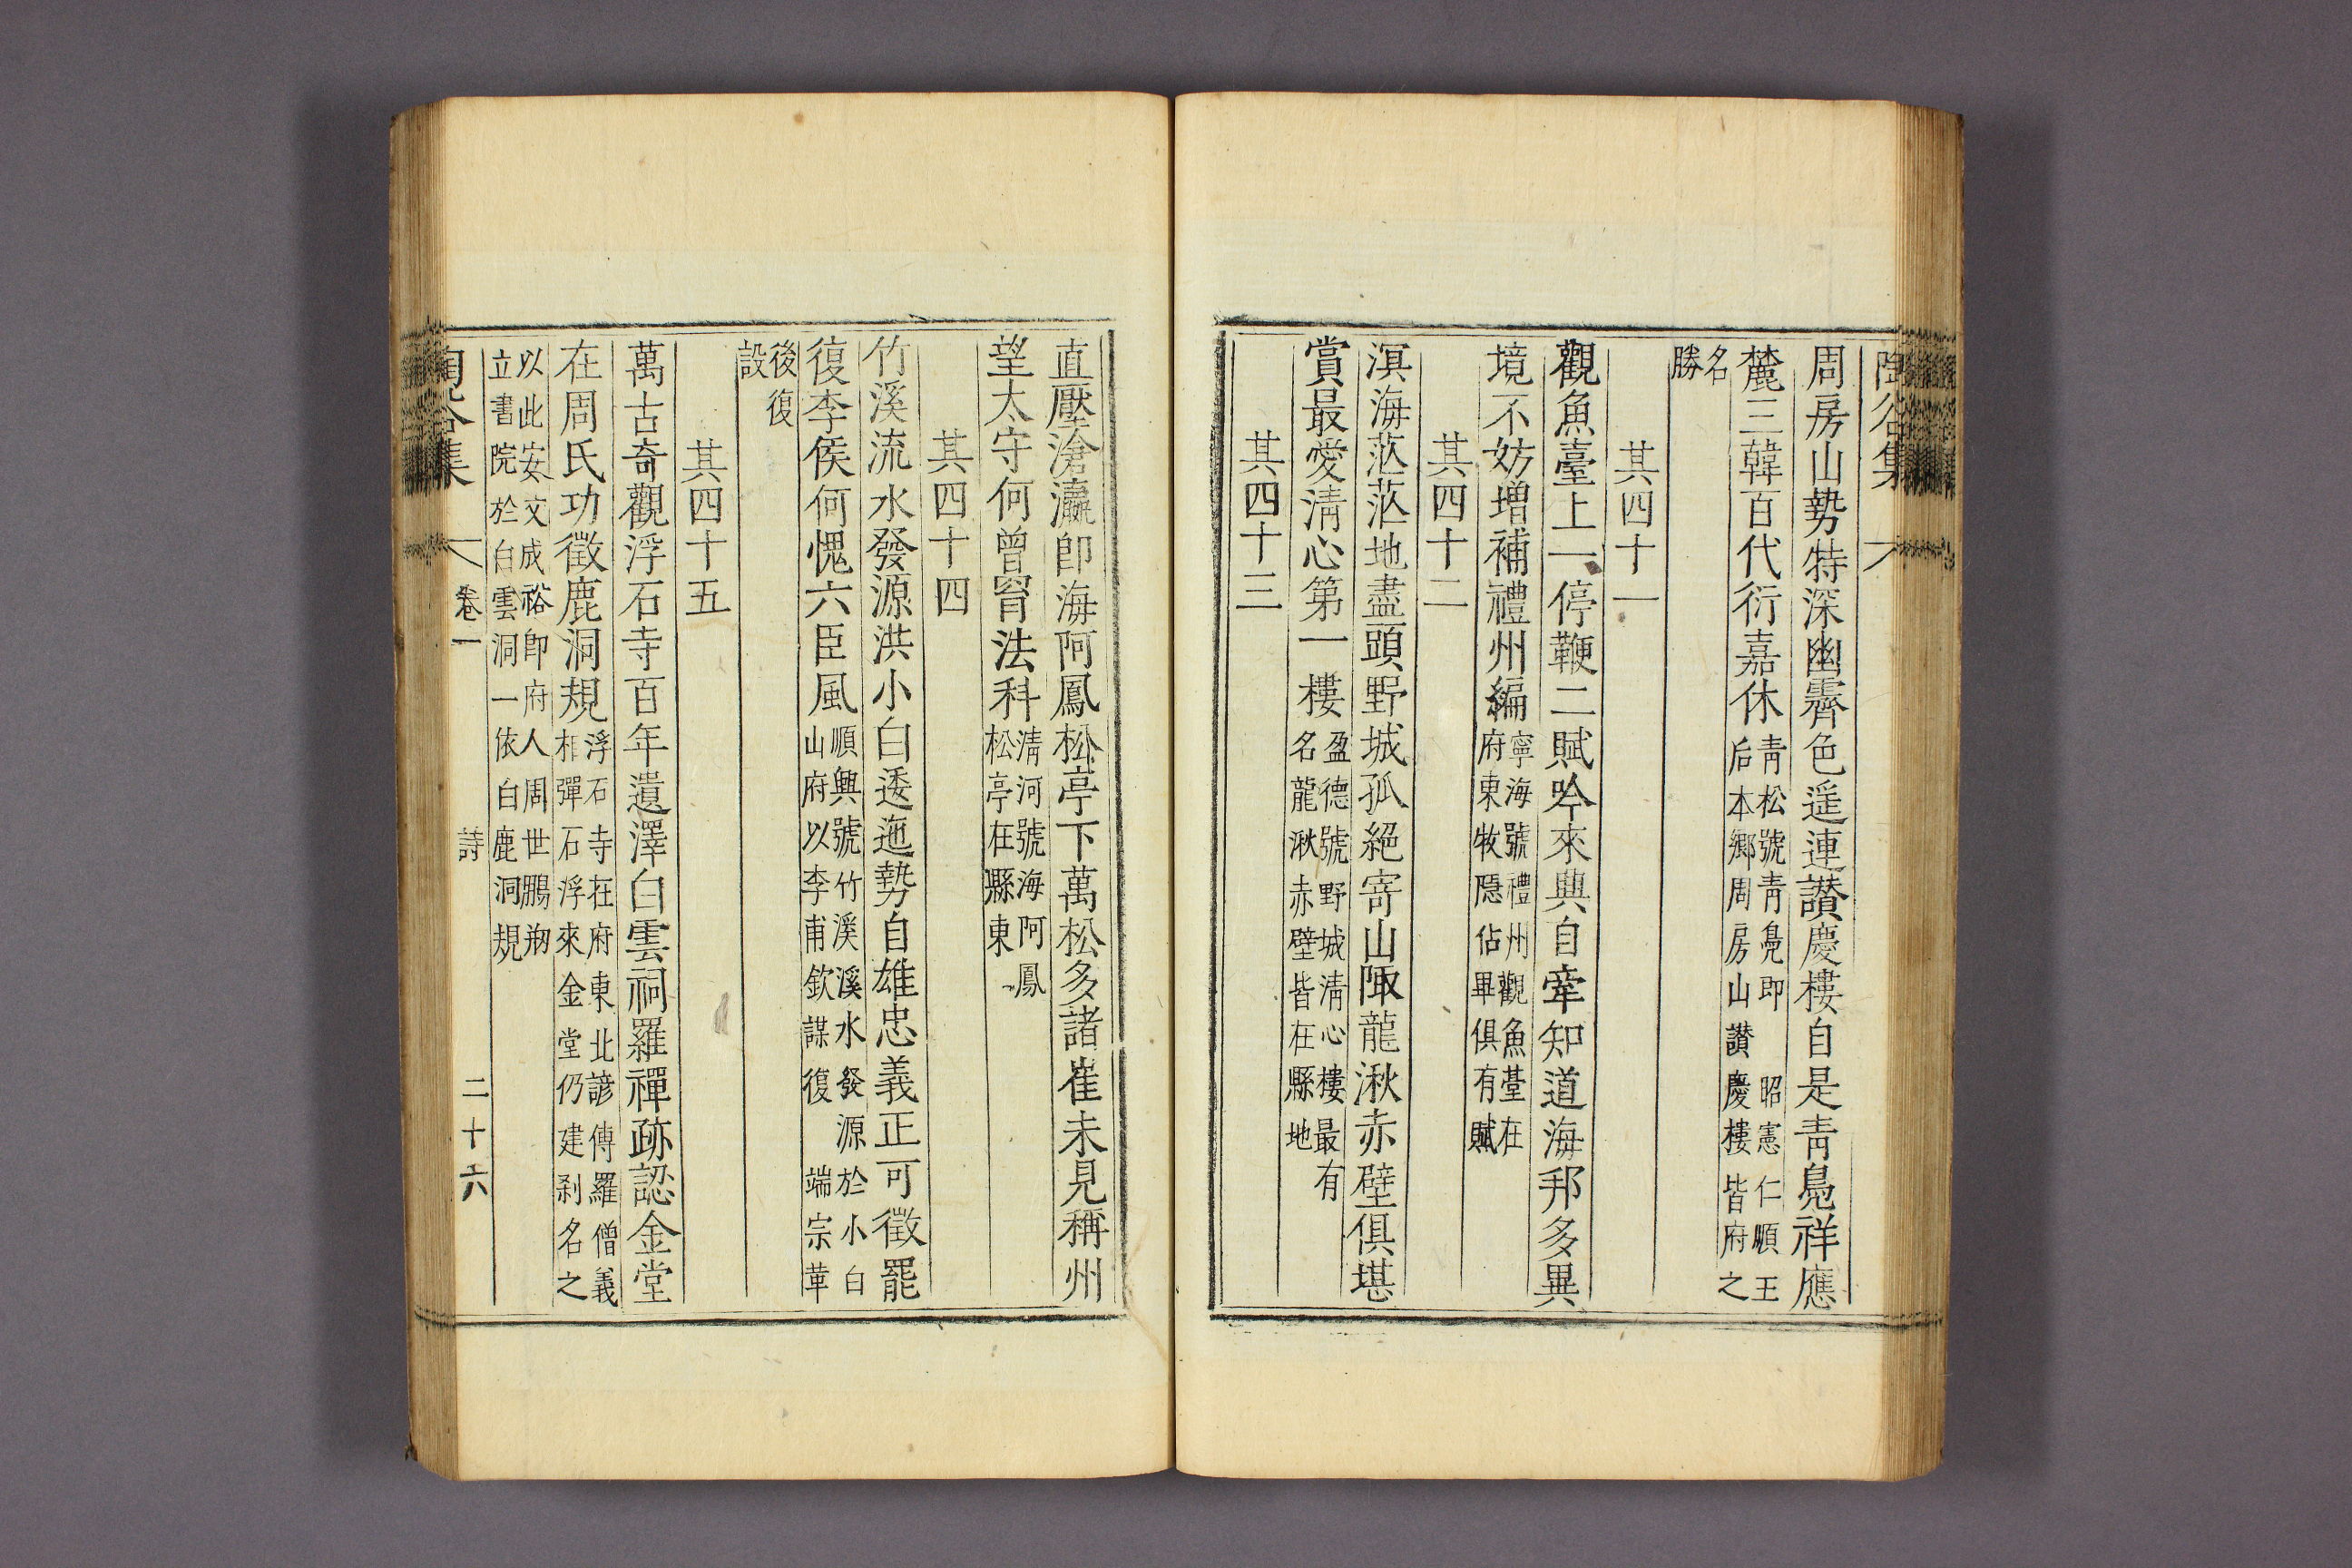 陶谷集
周房山勢特深幽霽色遥連讃慶樓自是青鳧祥應
麓三韓百代衍嘉休青松號青鳧即 昭憲仁順王
后本鄉周房山讃慶樓皆府之
名
勝
其四十一
觀魚臺上一停鞭二賦吟來興自牽知道海邦多異
境不妨增補禮州編寧海號禮州觀魚臺在
府東牧隐佔畢俱有賦
其四十二
溟海茫茫地盡頭野城孤絕寄山陬龍湫赤壁俱堪
賞最愛淸心第一樓盈德號野城淸心樓最有
名龍湫赤壁皆在縣地
其四十三
直壓滄瀛卽海阿鳳松亭下萬松多諸崔未見稱州
望太守何曾窅法科淸河號海阿鳳
松亭在縣東
其四十四
竹溪流水發源洪小白逶迤勢自雄忠義正可徵罷
復李侯何愧六臣風順興號竹溪溪水發源於小白
山府以李甫欽謀復 端宗革
後復
設
其四十五
萬古奇觀浮石寺百年遺澤白雲祠羅禪跡認金堂
在周氏功徵鹿洞規浮石寺在府東北諺傳羅僧義
相彈石浮來金堂仍建刹名之
以此安文成裕卽府人周世鵬刱
立書院於白雲洞一依白鹿洞規
陶谷集
卷一
詩
二十六